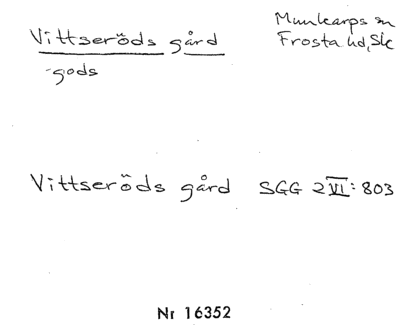 Vittseröds gård
Munkarps sn
Frosta hd, Sk
-gods
Vittseröds gård SGG 2 VI: 803
Nr 16352